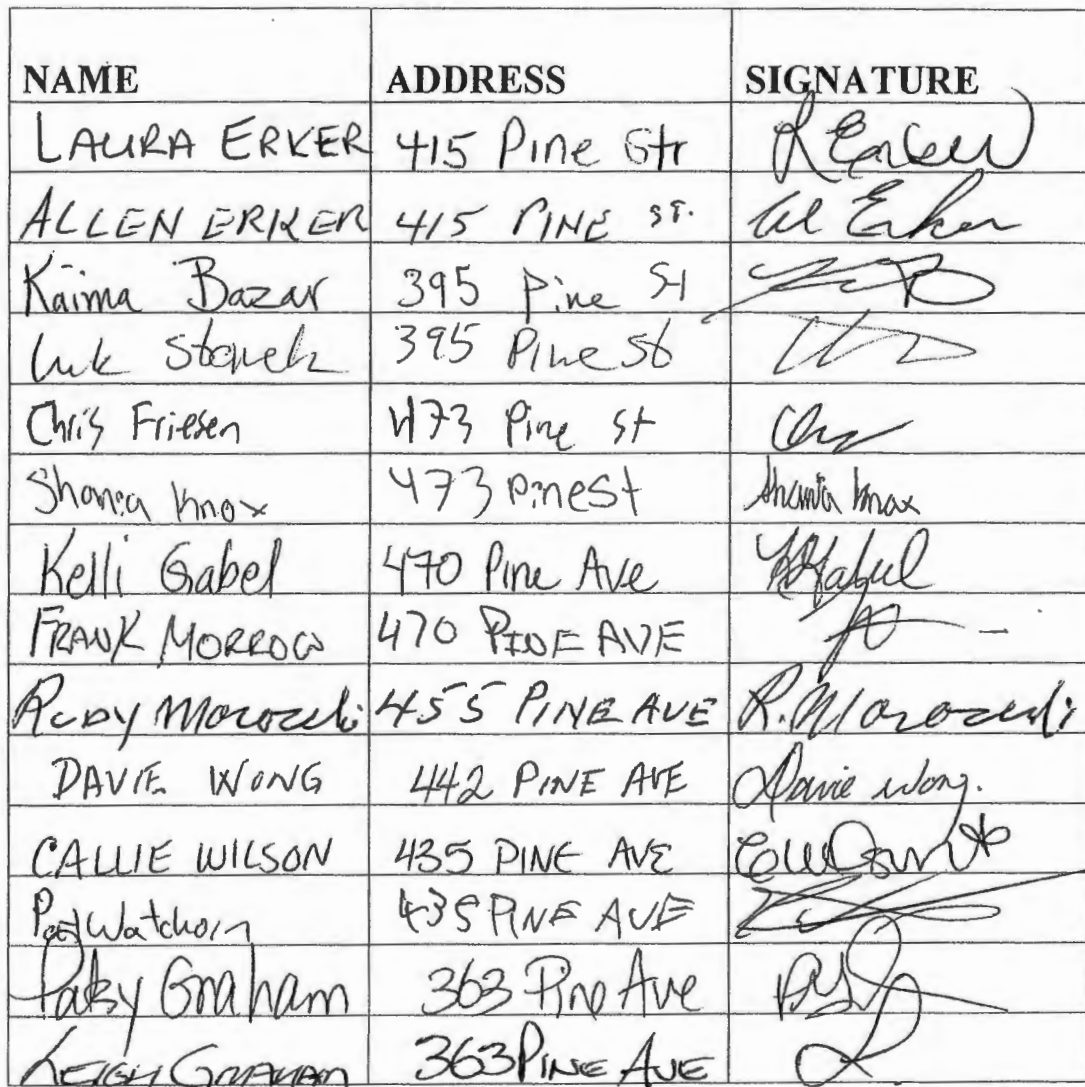 NAME ADDRESS SIGNATURE
LAURA ERKER 415 Pine Str L Erker
ALLEN ERKER 415 PINE ST. Al Erker
Kaima Bazar 395 Pine St
Luk 395 Pine St
Chris Friesen 473 Pine St
Shania Knox 473 Pine St Shania Knox
Kelli Gabel 470 Pine Ave KGabel
FRANK MORROW 470 PINE AVE
RUDY 455 PINE AVE R.
DAVIE WONG 442 PINE AVE Davie Wong.
CALLIE WILSON 435 PINE AVE
Watchorn 435 PINE AVE
Patsy Graham 363 Pine Ave
LEIGH GRAHAM 363 PINE AVE